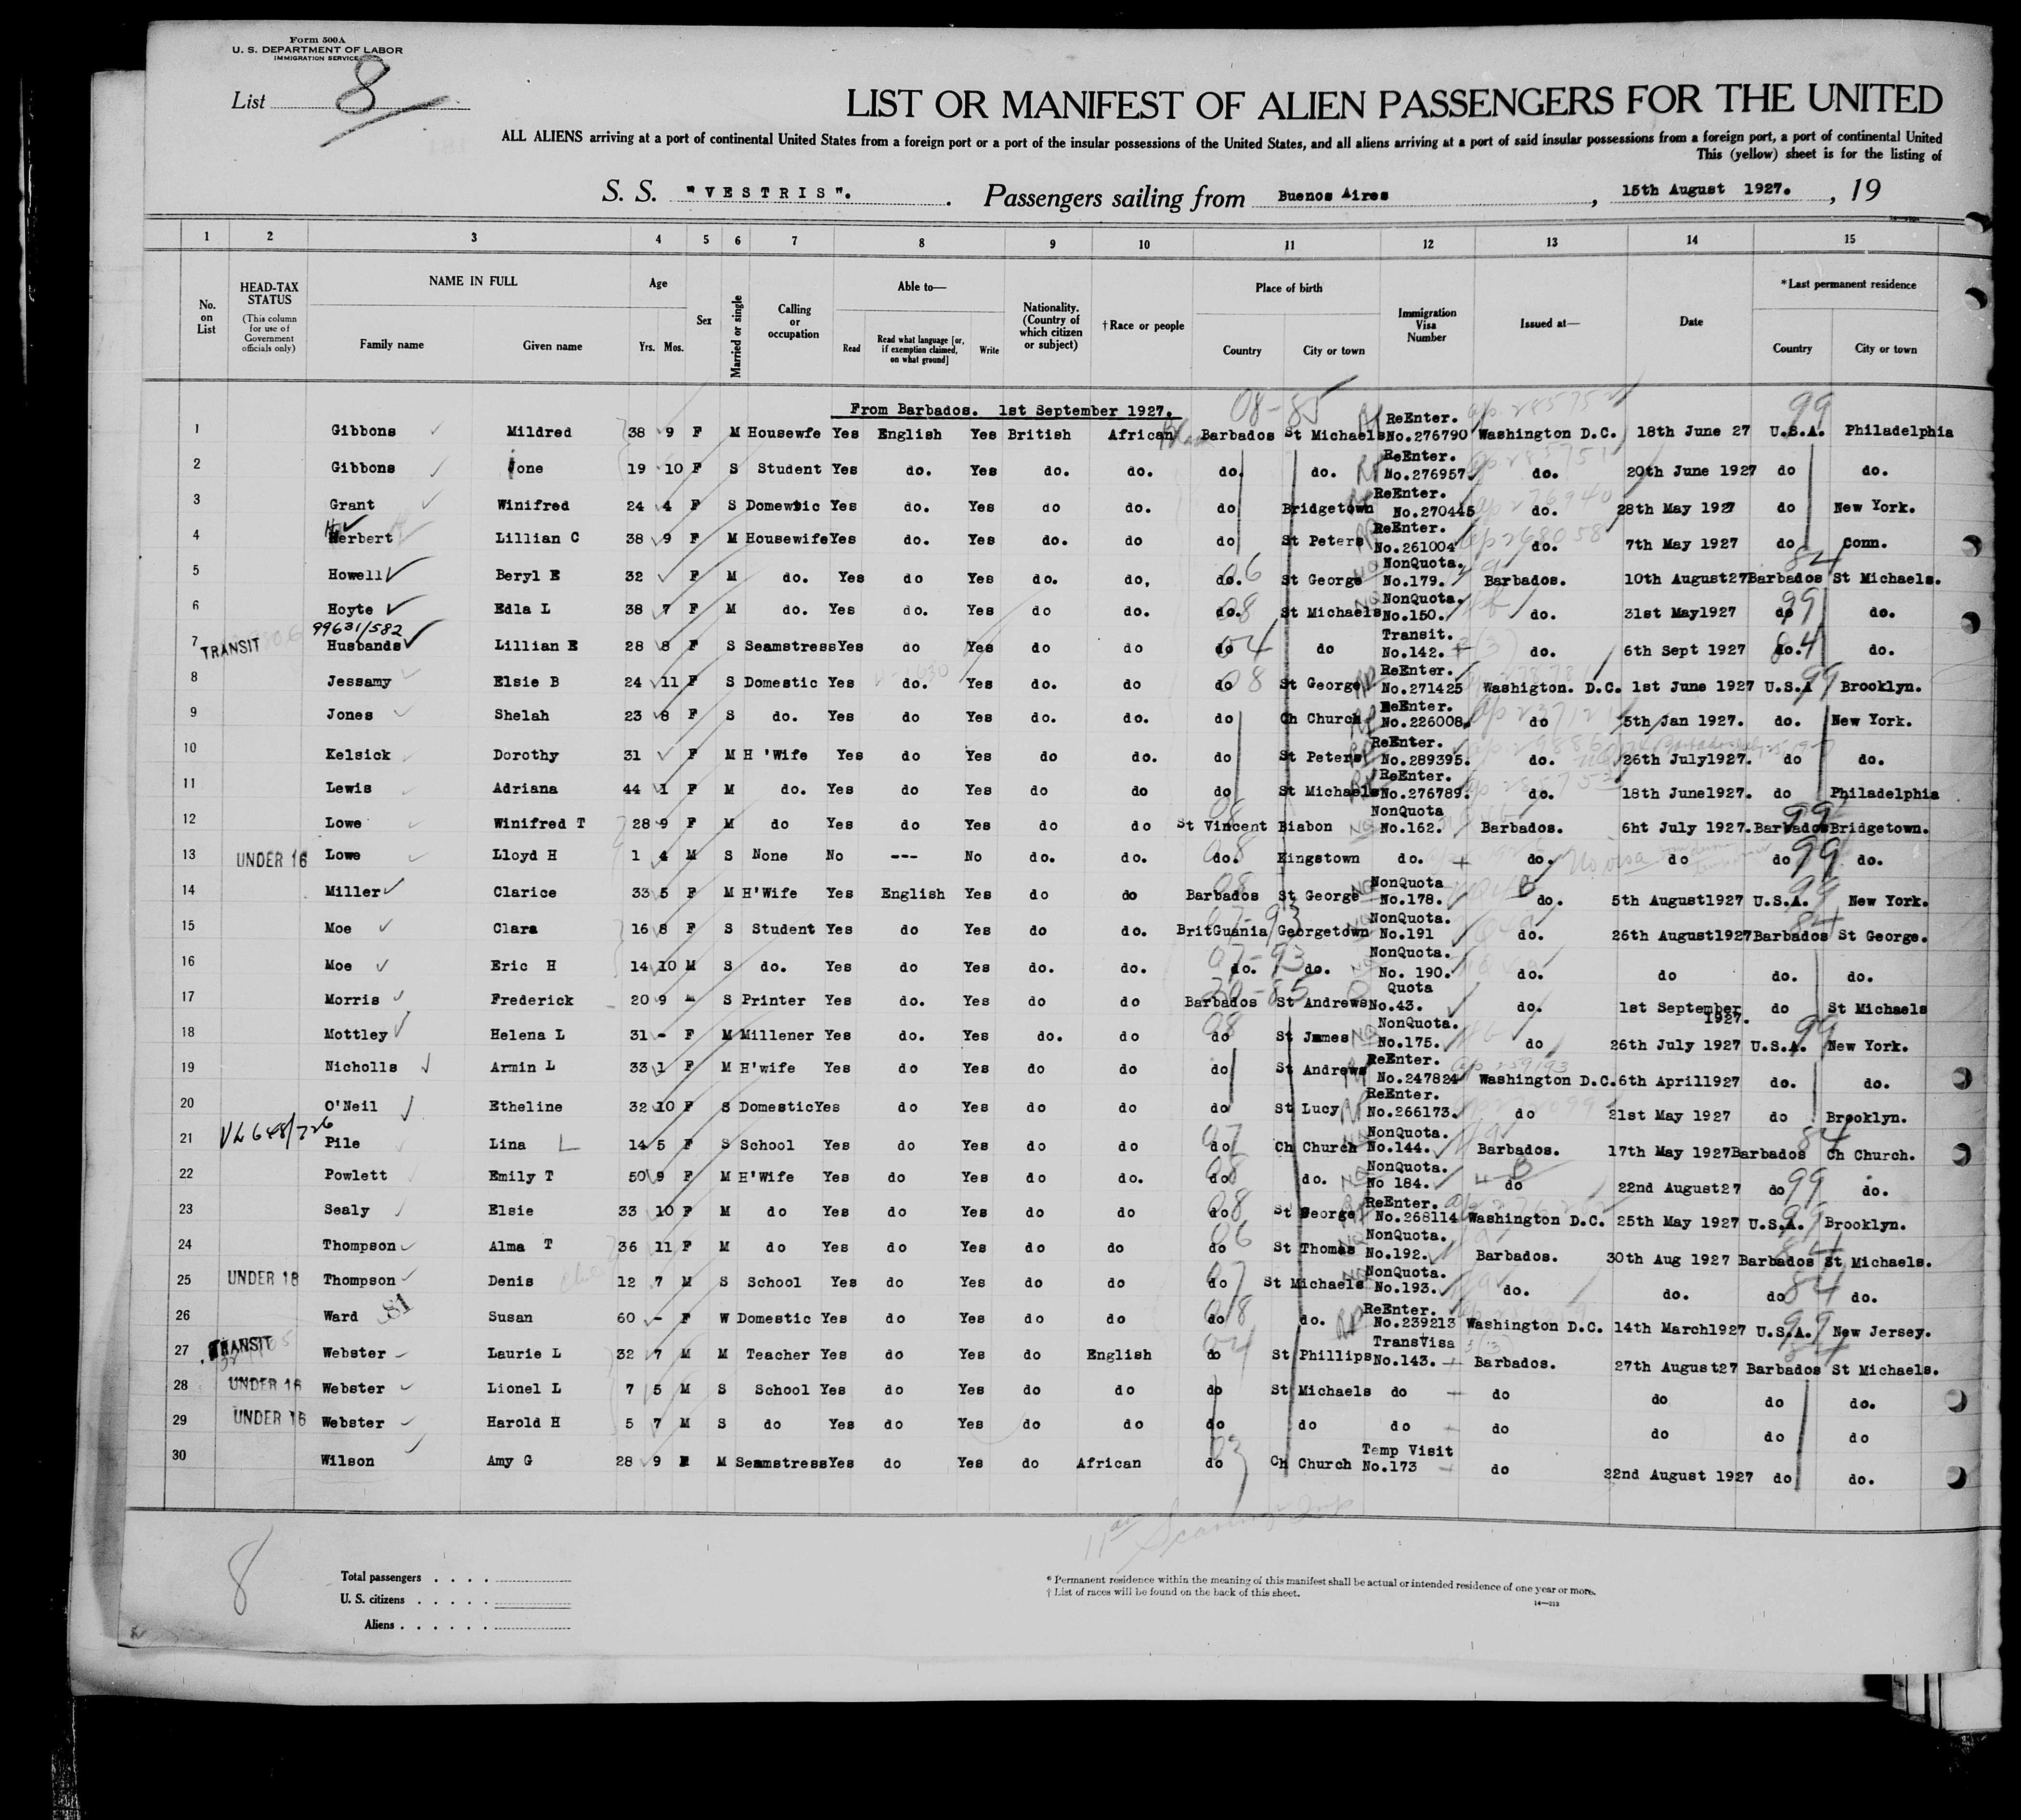 Form 500A
U. S. DEPARTMENT OF LABOR
IMMIGRATION SERVICE
List 8
LIST OR MANIFEST OF ALIEN PASSENGERS FOR THE UNITED
ALL ALIENS arriving at a port of continental United States from a foreign port or a port of the insular possessions of the United States, and all aliens arriving at a port of said insular possessions from a foreign port, a port of continental United
This (yellow) sheet is for the listing of
S. S. "VESTRIS". Passengers sailing from Buenos Aires, 15th August 1927., 19
1 2 3 4 5 6 7 8 9 10 11 12 13 14 15
No. on List
HEAD-TAX STATUS (This column for use of Government officials only)
NAME IN FULL Family name Given name
Age Yrs. Mos.
Sex
Married or single
Calling or occupation
Able to— Read Read what language [or, if exemption claimed, on what ground] Write
Nationality. (Country of which citizen or subject)
†Race or people
Place of birth Country City or town
Immigration Visa Number
Issued at—
Date
*Last permanent residence Country City or town
From Barbados. 1st September 1927. 08-85
1 Gibbons Mildred 38 9 F M Housewfe Yes English Yes British African Barbados St Michaels ReEnter. No.276790 Washington D.C. 18th June 27 U.S.A. Philadelphia 99
2 Gibbons Ione 19 10 F S Student Yes do. Yes do. do. do. do. ReEnter. No.276957 do. 20th June 1927 do do.
3 Grant Winifred 24 4 F S Domewtic Yes do. Yes do do. do Bridgetown ReEnter. No.270445 do. 28th May 1927 do New York.
4 Herbert Lillian C 38 9 F M Housewife Yes do. Yes do. do do St Peters ReEnter. No.261004 do. 7th May 1927 do Conn.
5 Howell Beryl E 32 F M do. Yes do Yes do. do, do. 06 St George NonQuota. No.179. Barbados. 10th August27 Barbados 84 St Michaels.
6 Hoyte Edla L 38 7 F M do. Yes do. Yes do do. do. 08 St Michaels NonQuota. No.150. do. 31st May1927 do 99 do.
99631/582
7 TRANSIT Husbands Lillian E 28 8 F S Seamstress Yes do Yes do do do 04 do Transit. No.142. do. 6th Sept 1927 do. 84 do.
8 Jessamy Elsie B 24 11 F S Domestic Yes do. Yes do. do do 08 St George ReEnter. No.271425 Washigton. D.C. 1st June 1927 U.S.A 99 Brooklyn.
9 Jones Shelah 23 8 F S do. Yes do Yes do. do. do Ch Church ReEnter. No.226008. do 5th Jan 1927. do. New York.
10 Kelsick Dorothy 31 F M H 'Wife Yes do Yes do do. do St Peters ReEnter. No.289395. do. 26th July1927. do do.
11 Lewis Adriana 44 1 F M do. Yes do Yes do do do St Michaels ReEnter. No.276789. do. 18th June1927. do Philadelphia
12 Lowe Winifred T 28 9 F M do Yes do Yes do do St Vincent Biabon NonQuota No.162. Barbados. 6ht July 1927. Barbados 99 Bridgetown.
13 UNDER 16 Lowe Lloyd H 1 4 M S None No --- No do. do. do. 08 Kingstown do. do. No visa do do 99 do.
14 Miller Clarice 33 5 F M H'Wife Yes English Yes do do Barbados 08 St George NonQuota No.178. do. 5th August1927 U.S.A. 99 New York.
15 Moe Clara 16 8 F S Student Yes do Yes do do. BritGuania Georgetown 07-93 NonQuota. No.191 do. 26th August1927 Barbados 84 St George.
16 Moe Eric H 14 10 M S do. Yes do Yes do. do. do. do. 07-93 NonQuota. No. 190. do. do do. do.
17 Morris Frederick 20 9 M S Printer Yes do. Yes do do Barbados St Andrews Quota No.43. do. 1st September 1927. do St Michaels
18 Mottley Helena L 31 - F M Millener Yes do. Yes do. do do 08 St James NonQuota. No.175. do 26th July 1927 U.S.A. 99 New York.
19 Nicholls Armin L 33 1 F M H'wife Yes do Yes do do do St Andrews ReEnter. No.247824 Washington D.C. 6th April1927 do. do.
20 O'Neil Etheline 32 10 F S Domestic Yes do Yes do do do St Lucy ReEnter. No.266173. do 21st May 1927 do Brooklyn.
21 Pile Lina L 14 5 F S School Yes do Yes do do do 07 Ch Church NonQuota. No.144. Barbados. 17th May 1927 Barbados 84 Ch Church.
22 Powlett Emily T 50 9 F M H'Wife Yes do Yes do do. do 08 do. NonQuota. No 184. do 22nd August27 do 99 do.
23 Sealy Elsie 33 10 F M do Yes do Yes do do do 08 St George ReEnter. No.268114 Washington D.C. 25th May 1927 U.S.A. 99 Brooklyn.
24 Thompson Alma T 36 11 F M do Yes do Yes do do do 06 St Thomas NonQuota. No.192. Barbados. 30th Aug 1927 Barbados 84 St Michaels.
25 UNDER 18 Thompson Denis 12 7 M S School Yes do Yes do do do 07 St Michaels NonQuota. No.193. do. do. do 84 do.
26 Ward 381 Susan 60 - F W Domestic Yes do Yes do do do 08 do. ReEnter. No.239213 Washington D.C. 14th March1927 U.S.A. 99 New Jersey.
27 TRANSIT Webster Laurie L 32 7 M M Teacher Yes do Yes do English do 04 St Phillips TransVisa No.143. Barbados. 27th August27 Barbados 84 St Michaels.
28 UNDER 16 Webster Lionel L 7 5 M S School Yes do Yes do do do St Michaels do do do do do.
29 UNDER 16 Webster Harold H 5 7 M S do Yes do Yes do do do do do do do do do
30 Wilson Amy G 28 9 M Seamstress Yes do Yes do African do 03 Ch Church Temp Visit No.173 do 22nd August 1927 do do.
8
Total passengers . . . .
U. S. citizens . . . . .
Aliens . . . . . .
* Permanent residence within the meaning of this manifest shall be actual or intended residence of one year or more.
† List of races will be found on the back of this sheet.
14—313